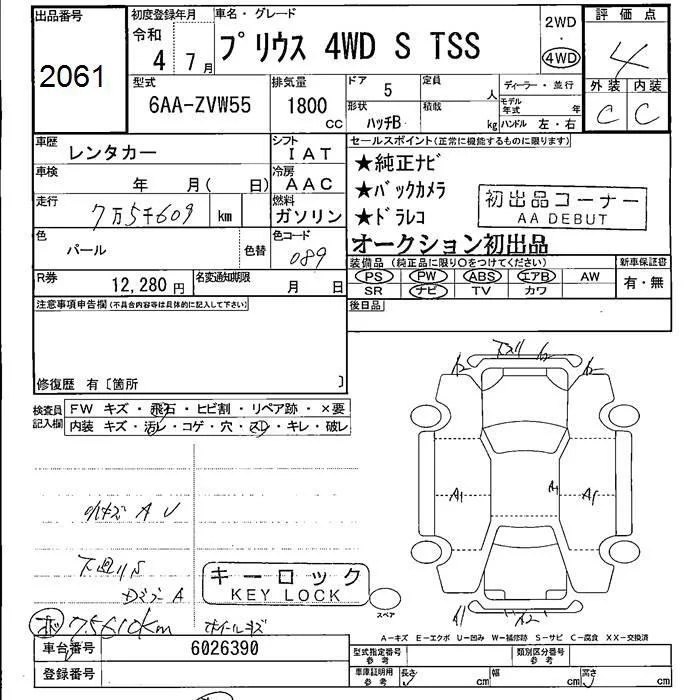 出品番号
2061
初度登録年月
令和
4 7月
車名・グレード
プリウス 4WD S TSS
2WD
・
4WD
評価点
4
外装 内装
C C
型式
6AA-ZVW55
排気量
1800
CC
ドア
5
定員
人
形状
ハッチB
積載
kg
ディーラー・並行
モデル年式 年
ハンドル 左・右
車歴
レンタカー
シフト
IAT
車検
年 月( 日)
冷房
AAC
走行
7万5千609 km
燃料
ガソリン
色
パール
色替
色コード
089
R券
12,280円
名変通知期限
月 日
セールスポイント(正常に機能するものに限ります)
★純正ナビ
★バックカメラ
★ドラレコ
オークション初出品
初出品コーナー
AA DEBUT
装備品(純正品に限り○をつけてください)
PS PW ABS エアB AW
SR ナビ TV カワ
新車保証書
有・無
後日品
注意事項申告欄(不具合内容等は具体的に記入して下さい)
修復歴 有〔箇所 〕
検査員
記入欄
FW キズ・飛石・ヒビ割・リペア跡・×要
内装 キズ・汚レ・コゲ・穴・スレ・キレ・破レ
小キズ A U
下廻りS
ドアミラー A
75610km
ホイールキズ
キーロック
KEY LOCK
スペア
A1
A1
A1
A1
A2
A-キズ E-エクボ U-凹み W-補修跡 S-サビ C-腐食 XX-交換済
車台番号
6026390
登録番号
型式指定番号
参考
類別区分番号
参考
車庫証明用
参考
長さ cm
幅 cm
高さ cm